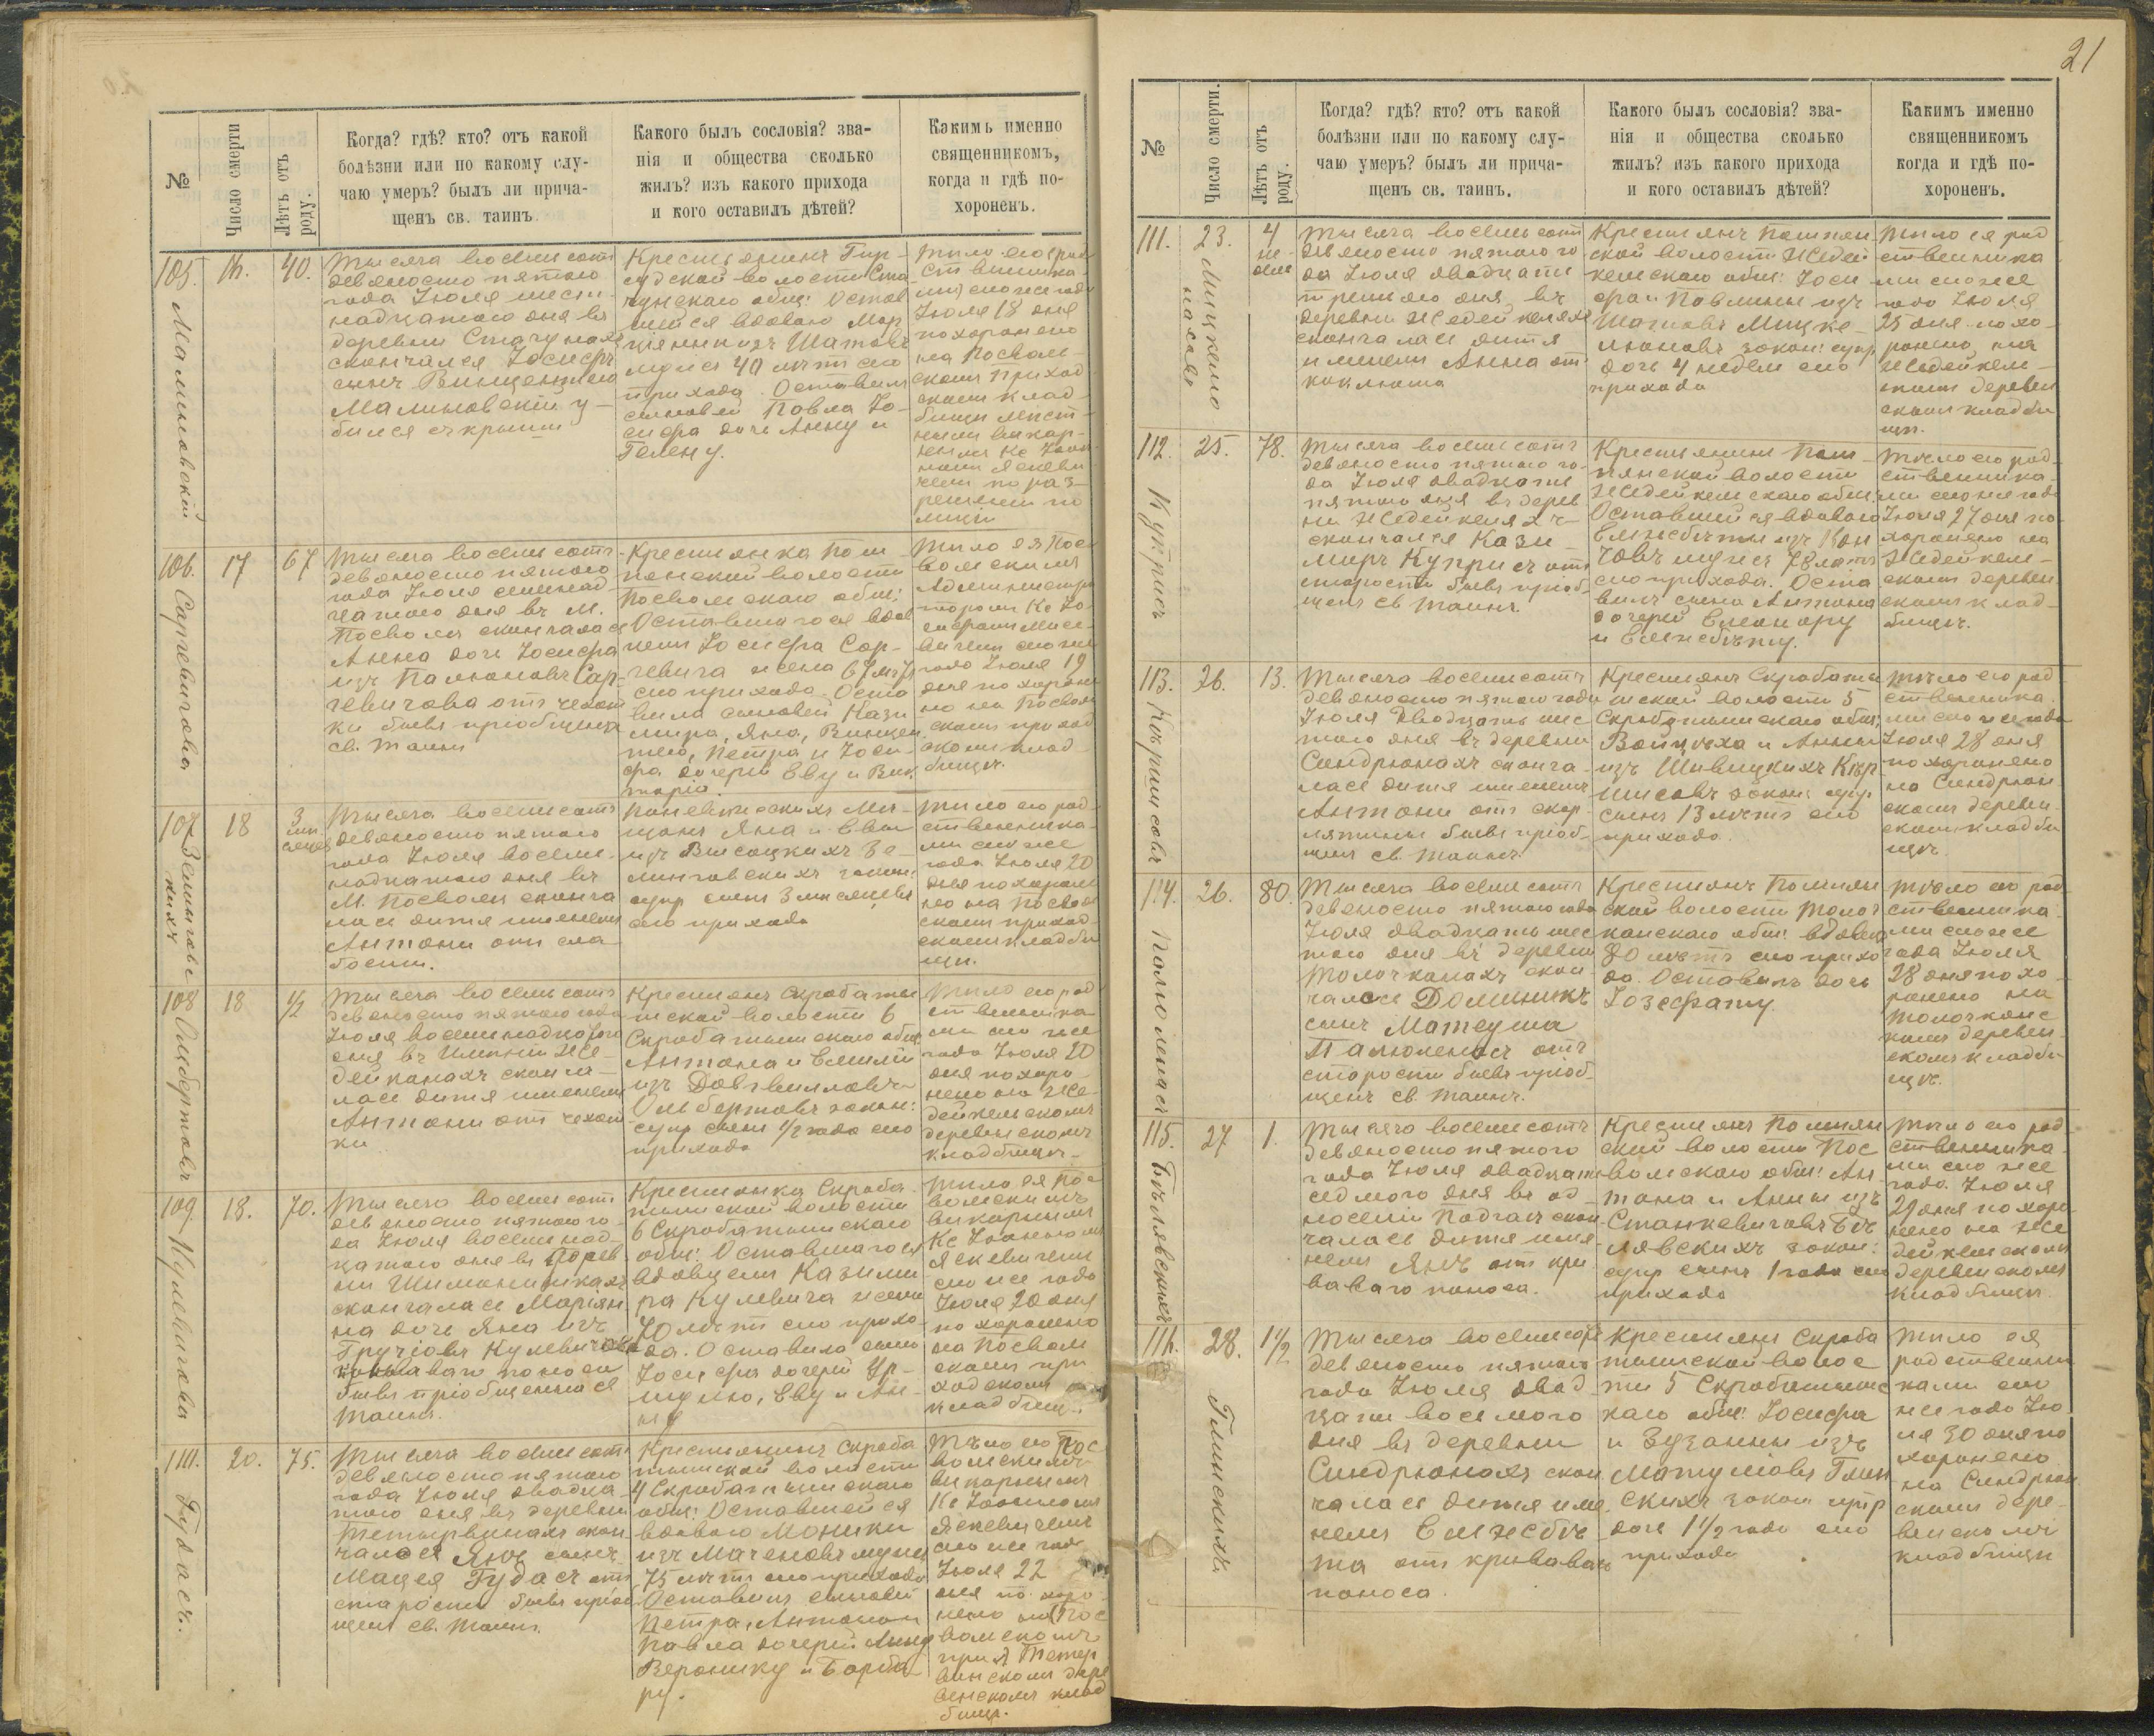 №
Число смерти
Лѣтъ отъ роду.
Когда? гдѣ? кто? отъ какой
болѣзни или по какому слу-
чаю умеръ? былъ ли прича-
щенъ св. таинъ.
Какого былъ сословія? зва-
нія и общества сколько
жилъ? изъ какого прихода
и кого оставилъ дѣтей?
Какимъ именно
священникомъ,
когда и гдѣ по-
хороненъ.
105.
Малиновскій
16.
40.
Тысяча восемьсотъ
девяносто пятого
года Іюля шест-
надцатого дня въ
деревни
скончался Іосифъ
сынъ Винцентаго
Малиновскій у-
бился съ крыши
Крестьянинъ Гир-
судской волости
общ: Остав
шейся вдовою Мар
ціянны изъ Шатовъ
мужъ 40 лѣтъ сего
прихода. Оставилъ
сыновей Павла Іо-
сифа дочь Анну и
Гелену.
тѣло его род
ственника-
ми сего же года
Іюля 18 дня
похоронено
на Посволь-
скомъ приход
скомъ клад-
бищи мѣст-
нымъ викар-
нымъ Кс
по раз-
рѣшенію по
лиціи
106.
Сарневичова
17
67
Тысяча восемьсотъ
девяносто пятого
года Іюля семнад-
цатого дня въ М.
Посволѣ скончалася
Анна дочь Іосифа
изъ Палюновъ Сар-
чевичова отъ чахот
ки бывъ пріобщенна
св. Таинъ
Крестьянка Пом-
пянской волости
Посвольскаго общ:
Оставшагося вдов
цемъ Іосифа Сар-
чевича жена 67 лѣтъ
сего прихода. Оста
вила сыновей Кази
мира, Яна, Винцен
таго, Петра и Іоси-
фа дочерей Еву и Вик
торію.
Тѣло ея Пос-
вольскимъ
Администра
торомъ Кс Іо-
сифомъ
сего же
года Іюля 19
дня похороне
но на Посволь
скомъ приход
скомъ клад-
бищѣ.
107
18
3
мѣ
сяцевъ
Тысяча восемьсотъ
девяносто пятого
года Іюля восем-
надцатого дня въ
М. Посволи сконча
лась дитя именемъ
Антони отъ сла
бости.
Поневѣжскихъ Мѣ-
щанъ Яна и Евы
изъ Высоцкихъ Зе-
линговскихъ закон:
супр сынъ 3 мѣсяцевъ
сего прихода
Тѣло его род-
ственника-
ми сего же
года Іюля 20
дня похороне
но на Посволь
скомъ приход-
скомъ кладби
щи.
108
Ольбертовъ
18
1/2
Тысяча восемьсотъ
девяносто пятого года
Іюля восемнадцатого
дня въ Имѣніи Же-
дейканахъ сконча-
лась дитя именемъ
Антони отъ чахот
ки
Крестьянъ Скробаты
шской волости 6
Скробатышскаго общ:
Антона и Емиліи
изъ Довгвилловъ
Ольбертовъ закон:
супр сынъ 1/2 года сего
прихода
Тѣло его род
ственника
ми сего же
года Іюля 20
дня похоро
нено на Же-
дейкельскомъ
деревенскомъ
кладбищѣ-
109.
Кулевичова
18.
70.
Тысяча восемьсотъ
девяносто пятого го-
да Іюля восемнад-
цатого дня въ дерев
ни Шиманишкахъ
скончалась Маріян
на дочь Яна изъ
Гручіовъ Кулевичова
поноса
бывъ пріобщенна св
Таинъ.
Крестьянка Скроба
тышской волости
6 Скробатышскаго
общ: Оставшагося
вдовцемъ Казими
ра Кулевича жена
70 лѣтъ сего прихо
да. Оставила сына
Іосифа дочерей Ур-
шулю, Еву и Ан-
ну
Тѣло ея Пос
вольскимъ
викарнымъ
Кс Іоанномъ
сего же года
Іюля 20 дня
похоронено
на Посволь
скомъ при
ходскомъ
кладбищ.
110.
Гудасъ.
20.
75.
Тысяча восемьсотъ
девяносто пятого
года Іюля двадца-
того дня въ деревни
Тетырвинахъ скон
чался Янъ сынъ
Мацея Гудасъ отъ
старости бывъ пріоб
щенъ св. Таинъ.
Крестьянинъ Скроба
тышской волости
4 Скробатышскаго
общ: Оставшейся
вдовою Моники
изъ Маченовъ мужъ
75 лѣтъ сего прихода
Оставилъ сыновей
Петра, Антона и
Павла дочерей Анну
Веронику и Барба
ру.
Тѣло его Пос
вольскимъ
викарнымъ
Кс Іоанномъ
сего же года
Іюля 22
дня похоро-
нено на Пос
вольскомъ
при Тетер
винскомъ дере
венскомъ клад
бищѣ.
21
№
Число смерти.
Лѣтъ отъ роду.
Когда? гдѣ? кто? отъ какой
болѣзни или по какому слу-
чаю умеръ? былъ ли прича-
щенъ св. таинъ.
Какого былъ сословія? зва-
нія и общества сколько
жилъ? изъ какого прихода
и кого оставилъ дѣтей?
Какимъ именно
священникомъ
когда и гдѣ по-
хороненъ.
111.
23.
4
не-
дели
Тысяча восемьсотъ
девяносто пятого го
да Іюля двадцати
третьяго дня въ
деревни Жедейкеляхъ
скончалась дитя
именемъ Анна отъ
коклюша
Крестьянъ Помпян
ской волости Жедей
кельскаго общ: Іоси
фа и Павлины изъ
Шатовъ Мицке-
люновъ закон: супр
дочь 4 недѣли сего
прихода
Тѣло ея род
ственника
ми сего же
года Іюля
25 дня похо-
ронено на
Жедейкель-
скомъ деревен
скомъ кладби
щи.
112.
Куприсъ
25.
78.
Тысяча восемьсотъ
девяносто пятого го-
да Іюля двадцать
пятого дня въ дерев
ни Жедейкеляхъ-
скончался Кази-
миръ Куприсъ отъ
старости бывъ пріоб-
щенъ св Таинъ.
Крестьянинъ Пом-
пянской волости
Жедейкельскаго общ:
Оставшейся вдовою
Елисебѣты изъ
мужъ 78 лѣтъ
сего прихода. Оста
вилъ сына Антона
дочерей Елеонору
и Елисебѣту.
Тѣло его род-
ственника-
ми сего же года
Іюля 27 дня по-
хоронено на
Жедейкель-
скомъ деревен
скомъ клад-
бищѣ.
113.
26.
13.
Тысяча восемьсотъ
девяносто пятого года
Іюля двадцать шес
того дня въ деревни
Синдрюнахъ сконча-
лась дитя именемъ
Антони отъ скар-
лятины бывъ пріоб-
щенъ св. Таинъ.
Крестьянъ Скробаты
шской волости 5
Скробатышскаго общ:
Войцѣха и Анны
изъ Шивицкихъ
закон: супр.
сынъ 13 лѣтъ сего
прихода.
Тѣло его род
ственника
ми сего же года
Іюля 28 дня
похоронено
на Синдрюн
скомъ деревен-
скомъ кладби
щѣ.
114.
26.
80.
Тысяча восемьсотъ
девяносто пятого года
Іюля двадцать шес
того дня въ деревни
Толочканахъ скон
чался Доминикъ
сынъ Матеуша
Палюленасъ отъ
старости бывъ пріоб-
щенъ св. Таинъ.
Крестьянъ Помпян
ской волости Толоч
канскаго общ: вдовецъ
80 лѣтъ сего прихо
да. Оставилъ дочь
Іозефату.
Тѣло его род
ственника
ми сего же
года Іюля
28 дня похо
ронено на
Толочканс
комъ деревен
скомъ кладби
щѣ.
115.
Бѣлявскихъ
27
1.
Тысяча восемьсотъ
девяносто пятого
года Іюля двадцать
седмого дня въ од-
носеліи Подчасъ скон
чалась дитя име
немъ Янъ отъ кри
ваваго поноса.
Крестьянъ Помпян
ской волости Пос
вольскаго общ: Ан
тона и Анны изъ
Станкевичовъ Бѣ
лявскихъ закон:
супр сынъ 1 года сего
прихода
Тѣло его род
ственника
ми сего же
года Іюля
29 дня похоро
нено на Же
дейкельскомъ
деревенскомъ
кладбищи.
116.
Глинскихъ
28.
1 1/2
Тысяча восемьсотъ
девяносто пятого
года Іюля двад-
цати восьмого
дня въ деревни
Синдрюнахъ скон
чалась дитя име
немъ Елисебѣ
та отъ криваваго
поноса.
Крестьянъ Скроба
тышской волос
ти 5 Скробатышс
каго общ: Іосифа
и Зузанны изъ
Матулювъ Глин
скихъ закон супр
дочь 1 1/2 года сего
прихода
Тѣло ея
родственни
ками сего
же года Ію
ля 30 дня по
хоронено
на Синдрюн
скомъ дере-
венскомъ
кладбищи